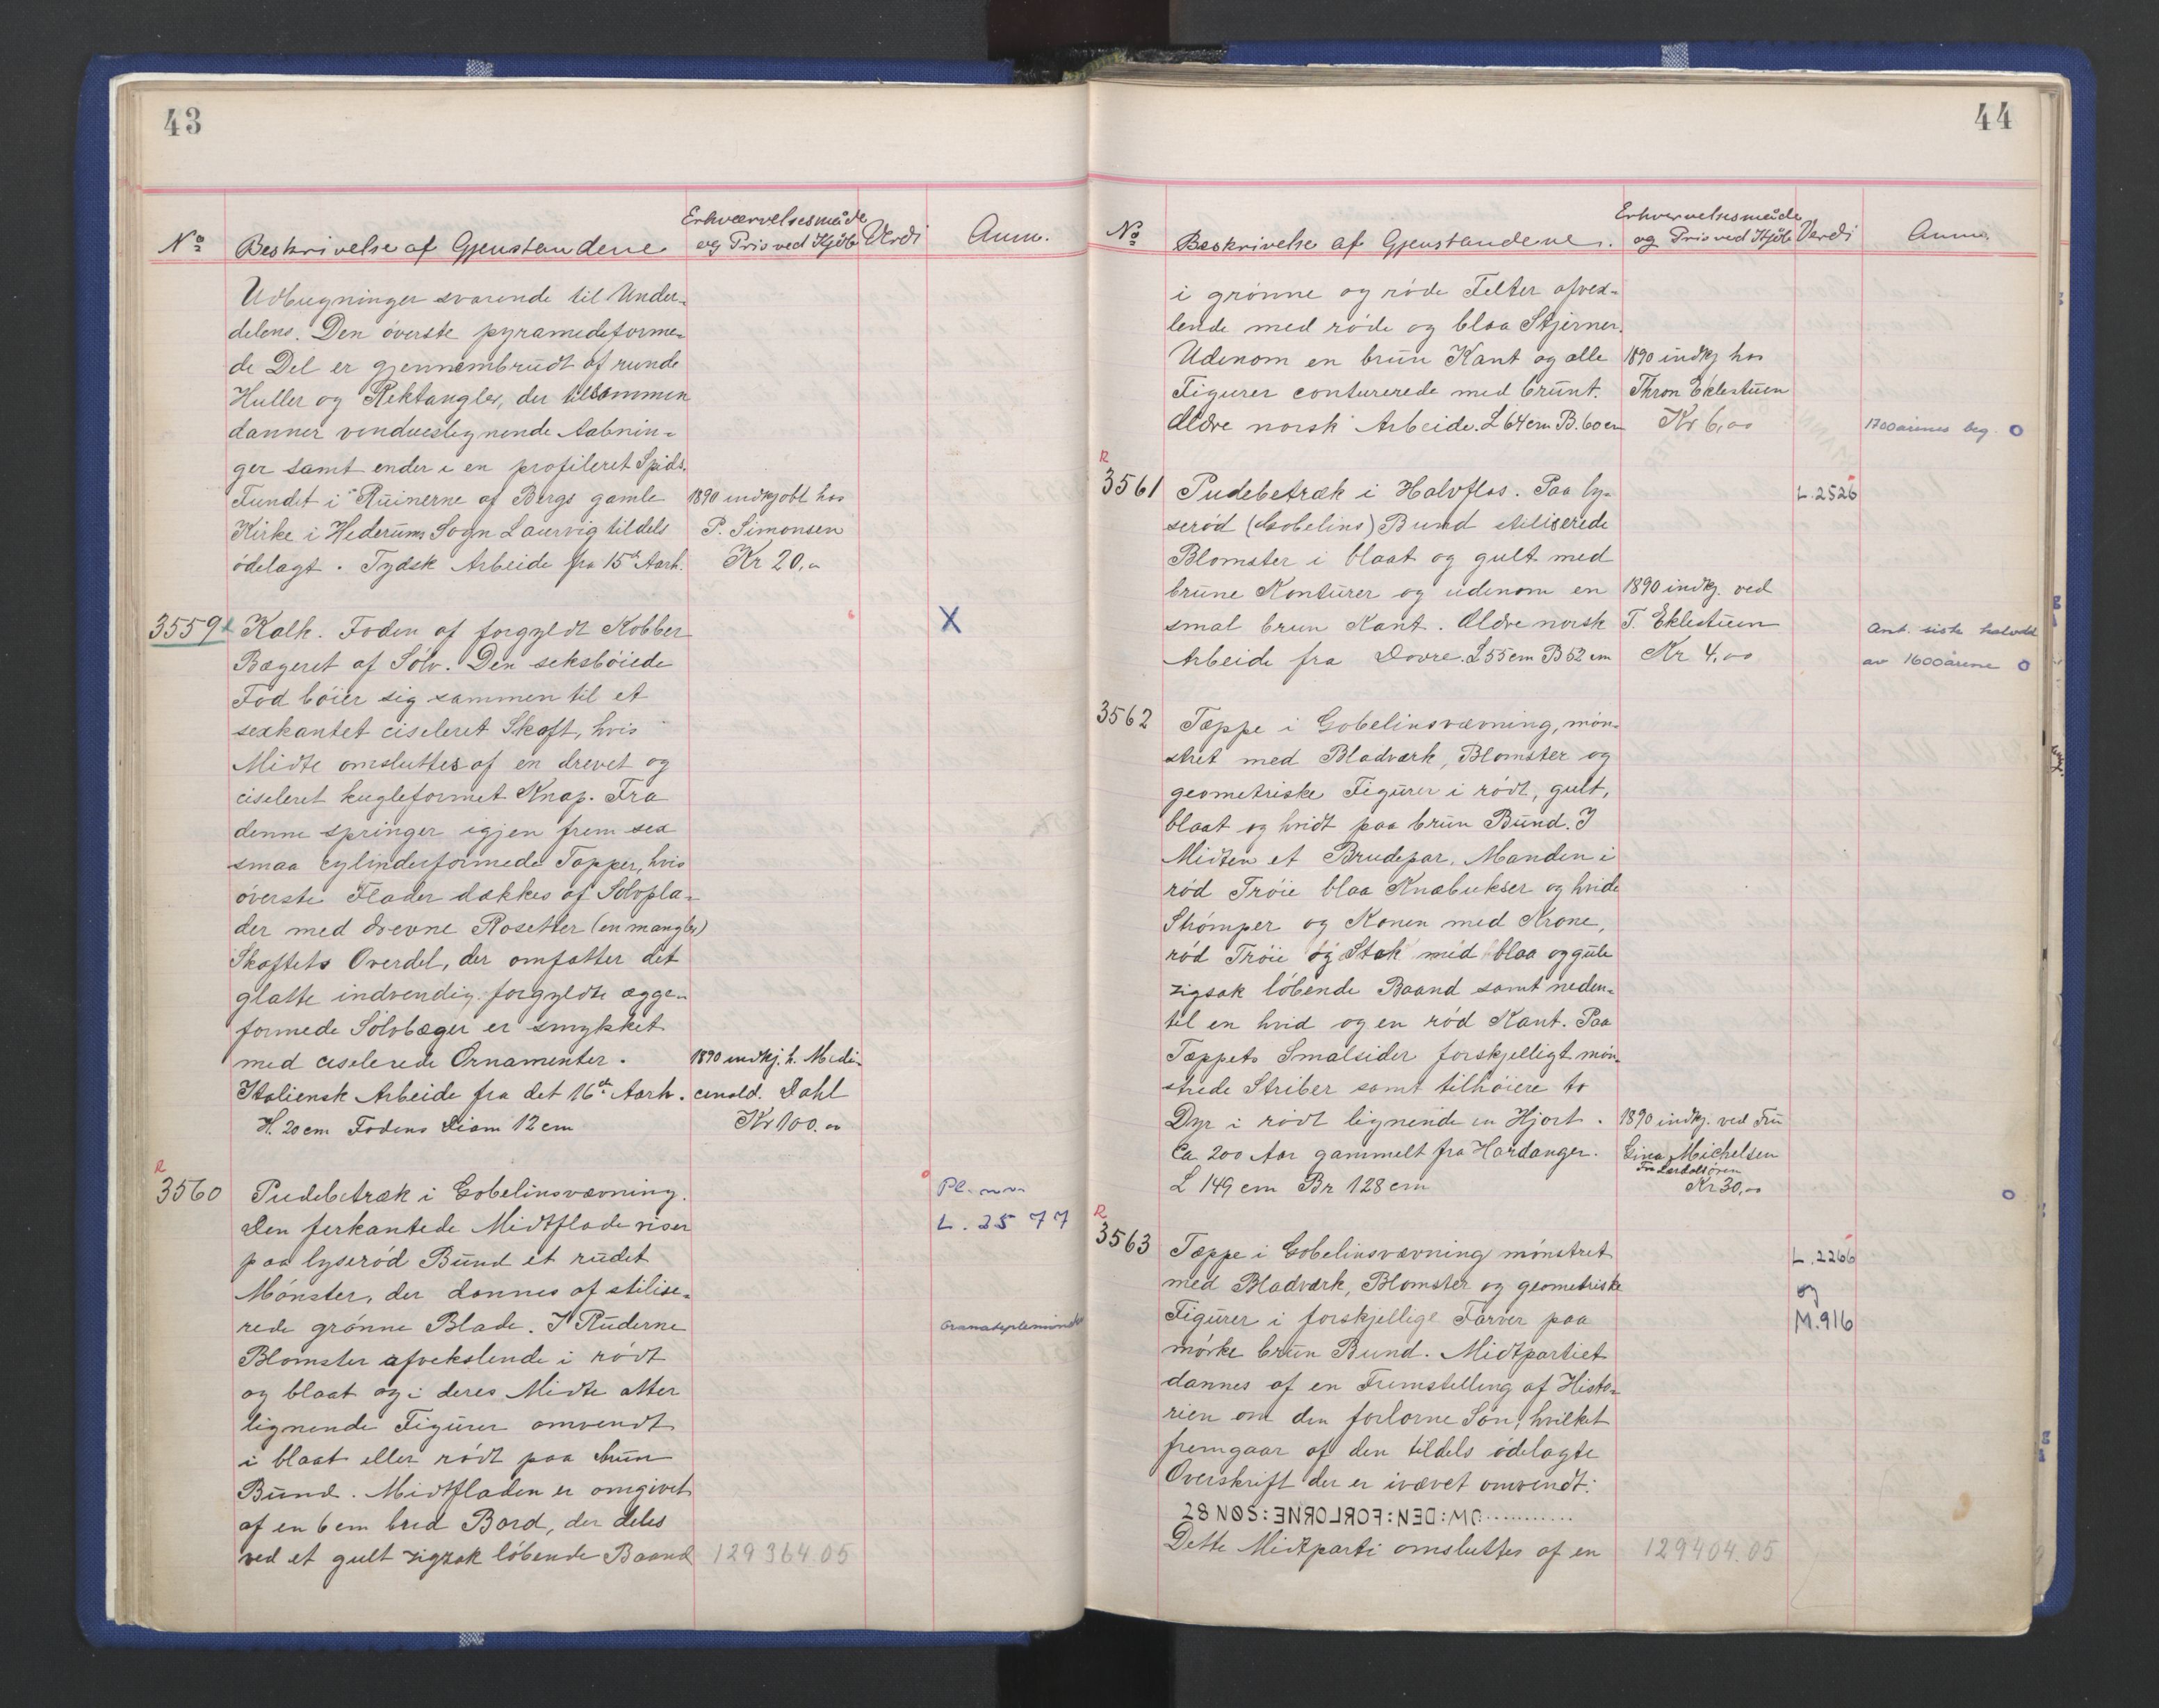 43
No
Beskrivelse af Gjenstandene
Erhvervelsesmåde
og Pris ved Kjöb
Verdi
Anm.
Udbugninger svarende til Under-
delens. Den överste pyramedeforme-
de Del er gjennembrudt af runde
Huller og Rektangler, der tilsammen
danner vindueslignende Aabnin-
ger samt ender i en profileret Spids.
Fundet i Ruinerne af Bergs gamle
Kirke i Hederums Sogn Laurvig tildels
ödelagt. Tydsk Arbeide fra 15de Aarh.
1890 indkjöbt hos
P. Simonsen
Kr 20,00
3559
Kalk. Foden af forgyldt Kobber
Bægeret af Sölv. Den seksböiede
Fod böier sig sammen til et
sexkantet ciseleret Skaft, hvis
Midte omsluttes af en drevet og
ciseleret kugleformet Knap. Fra
denne springer igjen frem sex
smaa cylinderformede Tapper, hvis
överste Flader dækkes af Sölvpla-
der med drevne Rosetter (en mangler)
Skaftets Overdel, der omfatter det
glatte indvendig forgyldte ægge-
formede Sölvbæger er smykket
med ciselerede Ornamenter.
Italiensk Arbeide fra det 16de Aarh.
H. 20 cm Fodens Diam 12 cm
1890 indkj. h. Medi-
cinald. Dahl
Kr 100.00
X
R
3560
Pudebetræk i Gobelinsvævning.
Den firkantede Midtflade viser
paa lyseröd Bund et rudet
Mönster, der dannes af stilise-
rede grönne Blade. I Ruderne
Blomster afvekslende i rödt
og blaat og i deres Midte atter
lignende Figurer omvendt
i blaat eller rödt paa brun
Bund. Midtfladen er omgivet
af en 6 cm bred Bord, der deles
ved et gult zigzak löbende Baand
L. 2577
129364.05
44
No
Beskrivelse af Gjenstandene.
Erhvervelsesmåde
og Pris ved Kjöb
Verdi
Anm.
i grönne og röde Felter afvex-
lende med röde og blaa Stjerner.
Udenom en brun Kant og alle
Figurer conturerede med brunt.
Ældre norsk Arbeide. L 64 cm B. 60 cm
1890 indkj hos
Thron Eklestuen
Kr 6,00
1700 årenes beg. O
R
3561
Pudebetræk i Halvflos. Paa ly-
seröd (Gobelins) Bund stiliserede
Blomster i blaat og gult med
brune Konturer og udenom en
smal brun Kant. Ældre norsk
Arbeide fra Dovre. L 55 cm B 52 cm
1890 indkj. ved
T. Eklestuen
Kr 4,00
L. 2526
Ant. siste halvdel
av 1600 årene O
3562
Tæppe i Gobelinsvævning, mön-
stret med Bladværk, Blomster og
geometriske Figurer i rödt, gult,
blaat og hvidt paa brun Bund. I
Midten et Brudepar, Manden i
röd Tröie blaa Knæbukser og hvide
Strömper og Konen med Krone,
röd Tröie og Stak med blaa og gule
zigsak löbende Baand samt neden-
til en hvid og en röd Kant. Paa
Tæppets Smalsider forskjelligt mön-
strede Striber samt tilhöiere to
Dyr i rödt lignende en Hjort.
Ca 200 Aar gammelt fra Hardanger.
L 149 cm Br 128 cm
1890 indkj. ved Fru
Gina Michelsen
Fra Lærdalsören
Kr 30,00
O
R
3563
Tæppe i Gobelinsvævning mönstret
med Bladværk, Blomster og geometriske
Figurer i forskjellige Farver paa
mörke brun Bund. Midtpartiet
dannes af en Fremstilling af Histo-
rien om den forlorne Sön, hvilket
fremgaar af den tildels ödelagte
Overskrift der er ivævet omvendt:
28 NØS:ENROLROF:NED:MO...........
Dette Midtparti omsluttes af en
L. 2266
og
M. 916
129404.05